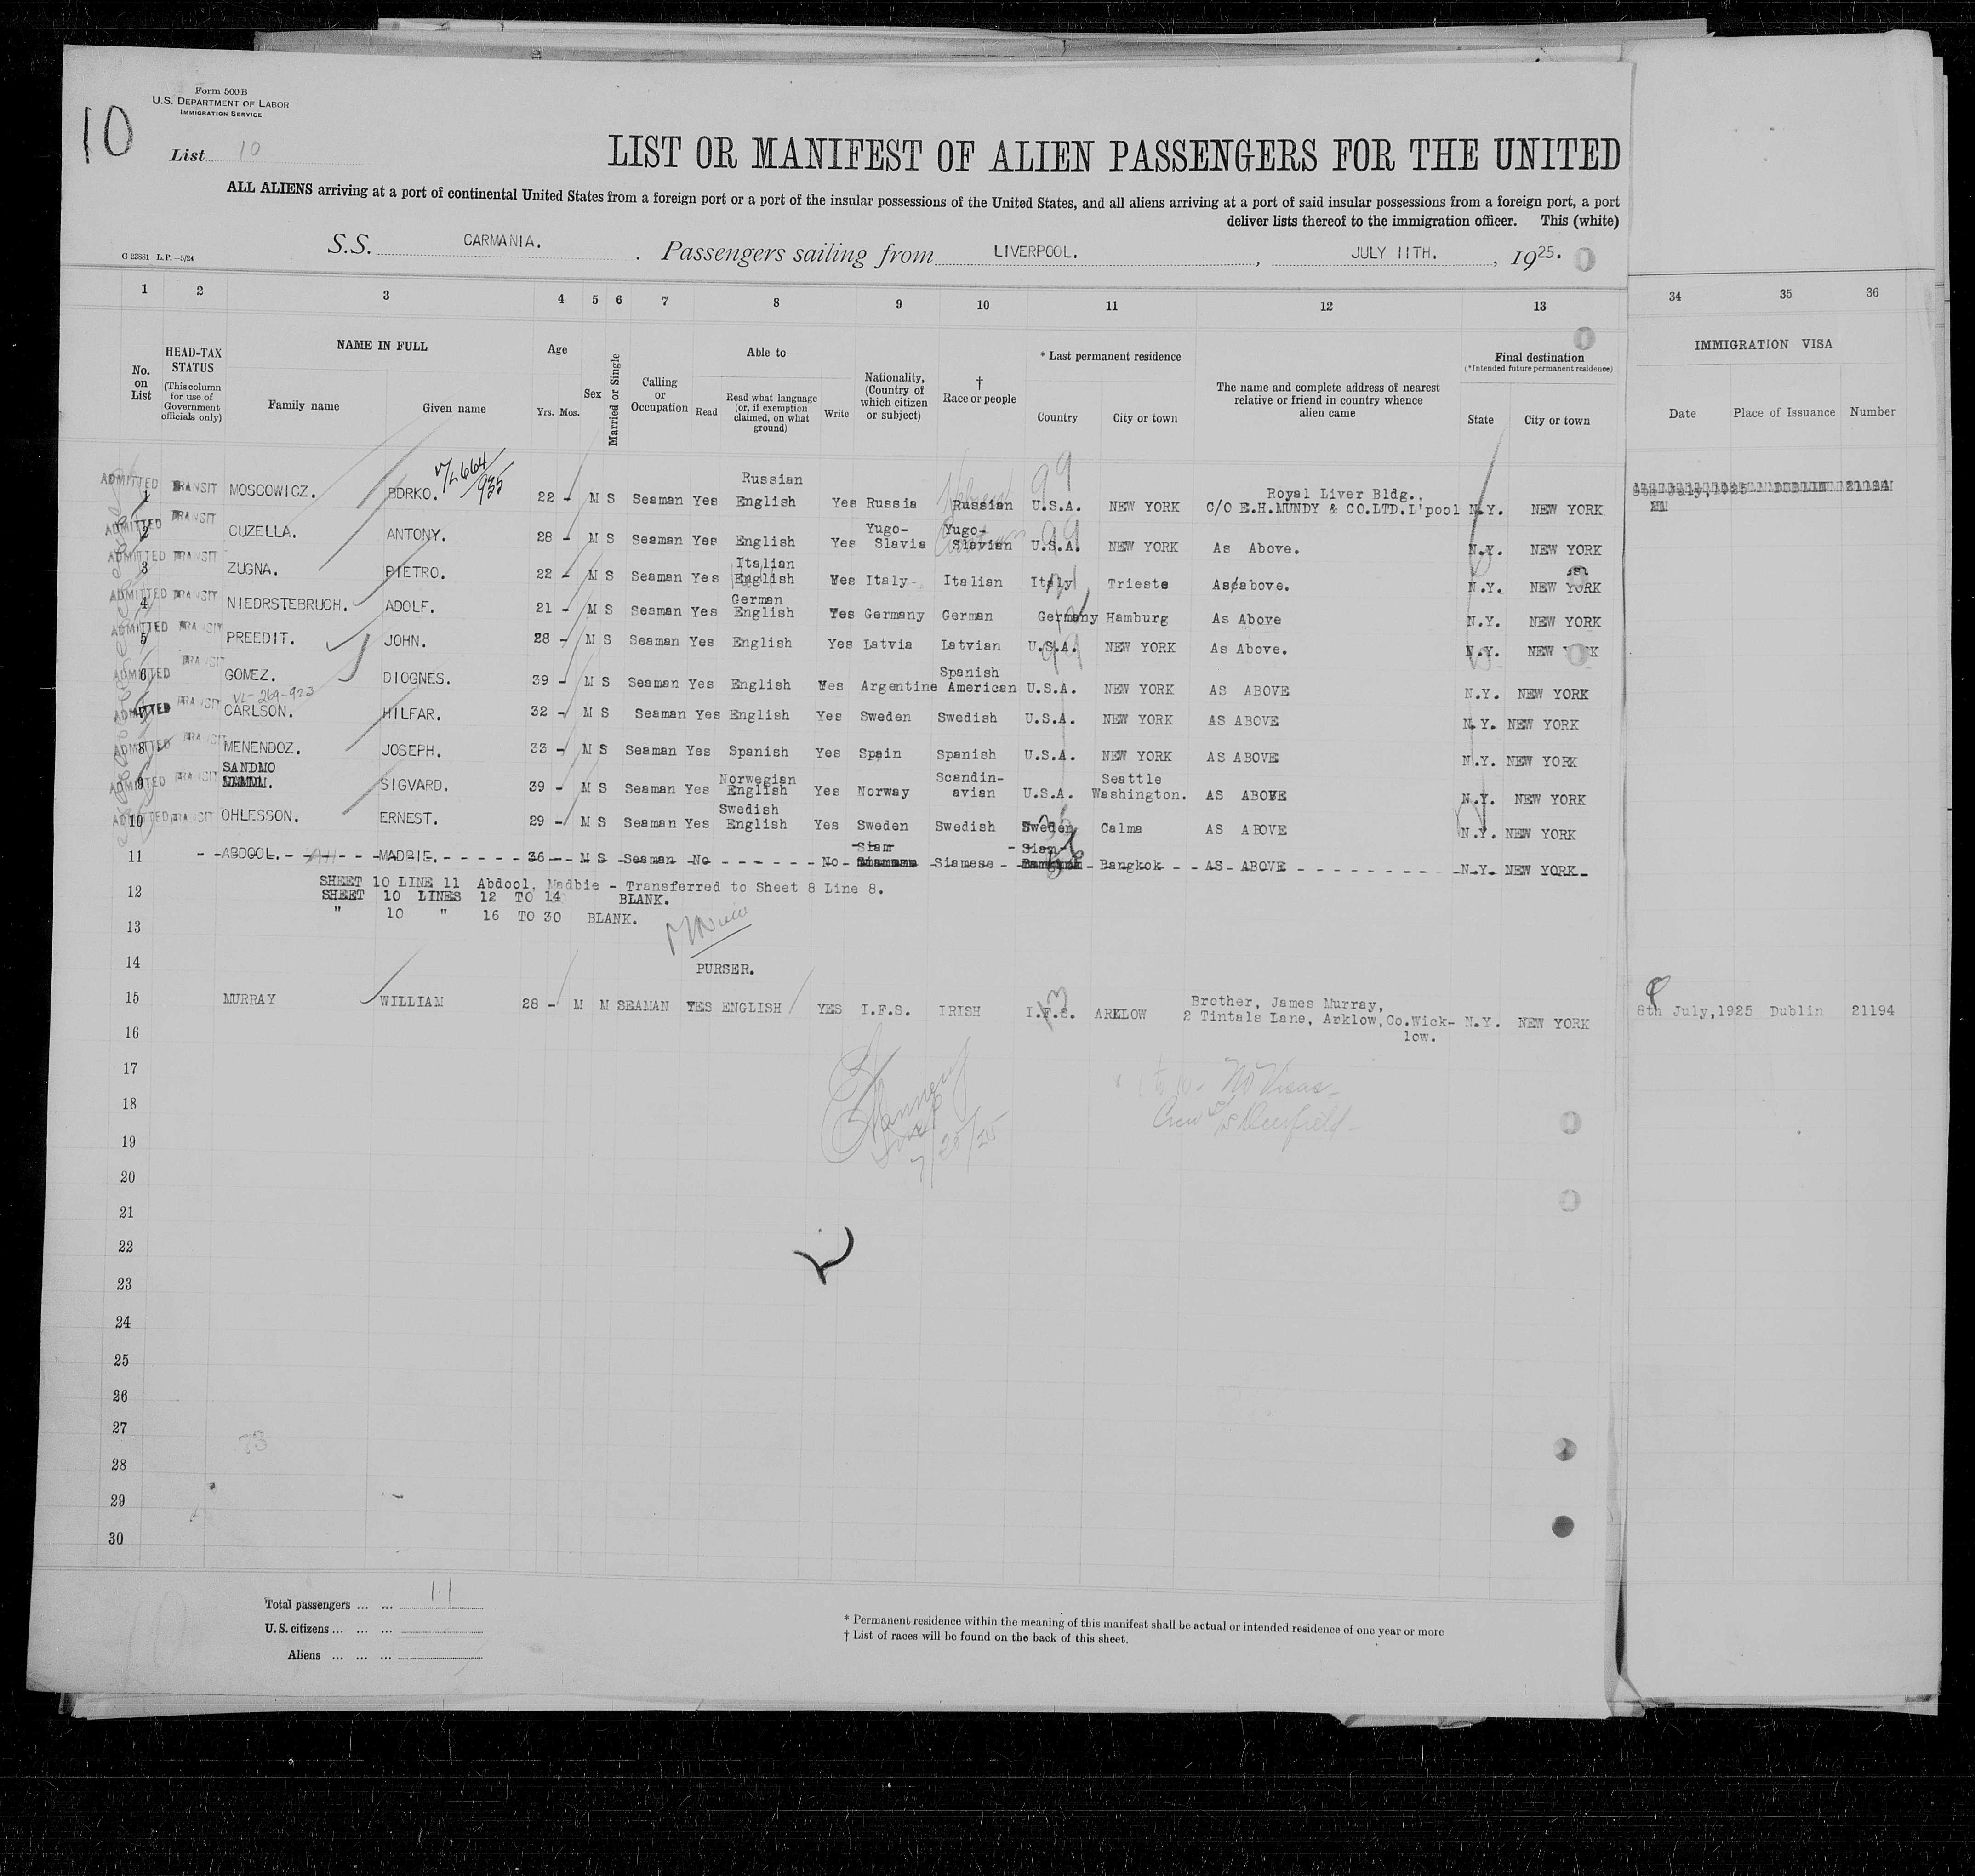 Form 500B
U.S. DEPARTMENT OF LABOR
IMMIGRATION SERVICE
10
List 10
LIST OR MANIFEST OF ALIEN PASSENGERS FOR THE UNITED
ALL ALIENS arriving at a port of continental United States from a foreign port or a port of the insular possessions of the United States, and all aliens arriving at a port of said insular possessions from a foreign port, a port
deliver lists thereof to the immigration officer. This (white)
G 23881 L.P.—5/24
S.S. CARMANIA. . Passengers sailing from LIVERPOOL. , JULY 11TH. , 1925.
1 2 3 4 5 6 7 8 9 10 11 12 13 34 35 36
No. on List
HEAD-TAX STATUS (This column for use of Government officials only)
NAME IN FULL
Family name Given name
Age
Yrs. Mos.
Sex
Married or Single
Calling or Occupation
Able to—
Read Read what language (or, if exemption claimed, on what ground) Write
Nationality, (Country of which citizen or subject)
† Race or people
* Last permanent residence
Country City or town
The name and complete address of nearest relative or friend in country whence alien came
Final destination
(*Intended future permanent residence)
State City or town
IMMIGRATION VISA
Date Place of Issuance Number
ADMITTED 1 TRANSIT MOSCOWICZ. BORKO. 22 - M S Seaman Yes Russian English Yes Russia Russian U.S.A. NEW YORK Royal Liver Bldg., C/O E.H.MUNDY & CO.LTD.L'pool N.Y. NEW YORK 8th July, 1925 DUBLIN 21194
V/L 664/935
ADMITTED 2 TRANSIT CUZELLA. ANTONY. 28 - M S Seaman Yes English Yes Yugo-Slavia Yugo-Slavian U.S.A. NEW YORK As Above. N.Y. NEW YORK
ADMITTED 3 TRANSIT ZUGNA. PIETRO. 22 - M S Seaman Yes Italian English Yes Italy Italian Italy Trieste As above. N.Y. NEW YORK
ADMITTED 4 TRANSIT NIEDRSTEBRUCH. ADOLF. 21 - M S Seaman Yes German English Yes Germany German Germany Hamburg As Above N.Y. NEW YORK
ADMITTED 5 TRANSIT PREEDIT. JOHN. 28 - M S Seaman Yes English Yes Latvia Latvian U.S.A. NEW YORK As Above. N.Y. NEW YORK
ADMITTED 6 TRANSIT GOMEZ. DIOGNES. 39 - M S Seaman Yes English Yes Argentine Spanish American U.S.A. NEW YORK AS ABOVE N.Y. NEW YORK
VL-269-923
ADMITTED 7 TRANSIT CARLSON. HILFAR. 32 - M S Seaman Yes English Yes Sweden Swedish U.S.A. NEW YORK AS ABOVE N.Y. NEW YORK
ADMITTED 8 TRANSIT MENENDOZ. JOSEPH. 33 - M S Seaman Yes Spanish Yes Spain Spanish U.S.A. NEW YORK AS ABOVE N.Y. NEW YORK
ADMITTED 9 TRANSIT SANDMO SIGVARD. 39 - M S Seaman Yes Norwegian English Yes Norway Scandin-avian U.S.A. Seattle Washington. AS ABOVE N.Y. NEW YORK
ADMITTED 10 TRANSIT OHLESSON. ERNEST. 29 - M S Seaman Yes Swedish English Yes Sweden Swedish Sweden Calma AS ABOVE N.Y. NEW YORK
11 ABDOOL. MADBIE. 36 M S Seaman No No Siam Siamese Siam Bangkok AS ABOVE N.Y. NEW YORK
SHEET 10 LINE 11 Abdool, Madbie - Transferred to Sheet 8 Line 8.
12 SHEET 10 LINES 12 TO 14 BLANK.
" 10 " 16 TO 30 BLANK.
13
14 PURSER.
15 MURRAY WILLIAM 28 - M M SEAMAN YES ENGLISH YES I.F.S. IRISH I.F.S. ARKLOW Brother, James Murray, 2 Tintals Lane, Arklow,Co.Wick-low. N.Y. NEW YORK 8th July,1925 Dublin 21194
16
17
1 to 10 - No Visas -
18
Crew S/S Deerfield -
19
7/25/25
20
21
22
23
24
25
26
27
73
28
29
30
Total passengers ... ... 11
U. S. citizens ... ... ...
Aliens ... ... ...
* Permanent residence within the meaning of this manifest shall be actual or intended residence of one year or more
† List of races will be found on the back of this sheet.